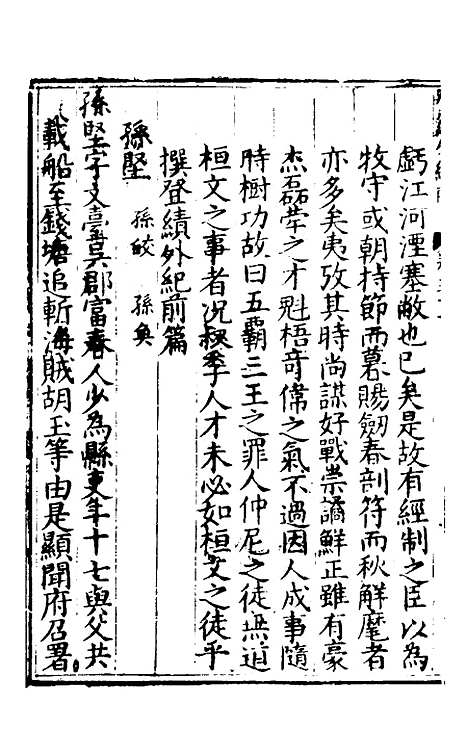 虧江河湮塞敝也已矣是故有經制之臣以為
牧守或朝持節而暮賜劒春剖符而秋解麾者
亦多矣夷攷其時尚謀好戰崇譎鮮正雖有豪
杰磊犖之才魁梧奇偉之氣不過因人成事隨
時樹功故曰五覇三王之罪人仲尼之徒無道
桓文之事者况叔季人才未必如桓文之徒乎
撰登績外紀前篇
孫堅 孫皎 孫奐
孫堅字文臺吳郡富春人少為縣吏年十七與父共
載船至錢塘追斬海賊胡玉等由是顯聞府召署